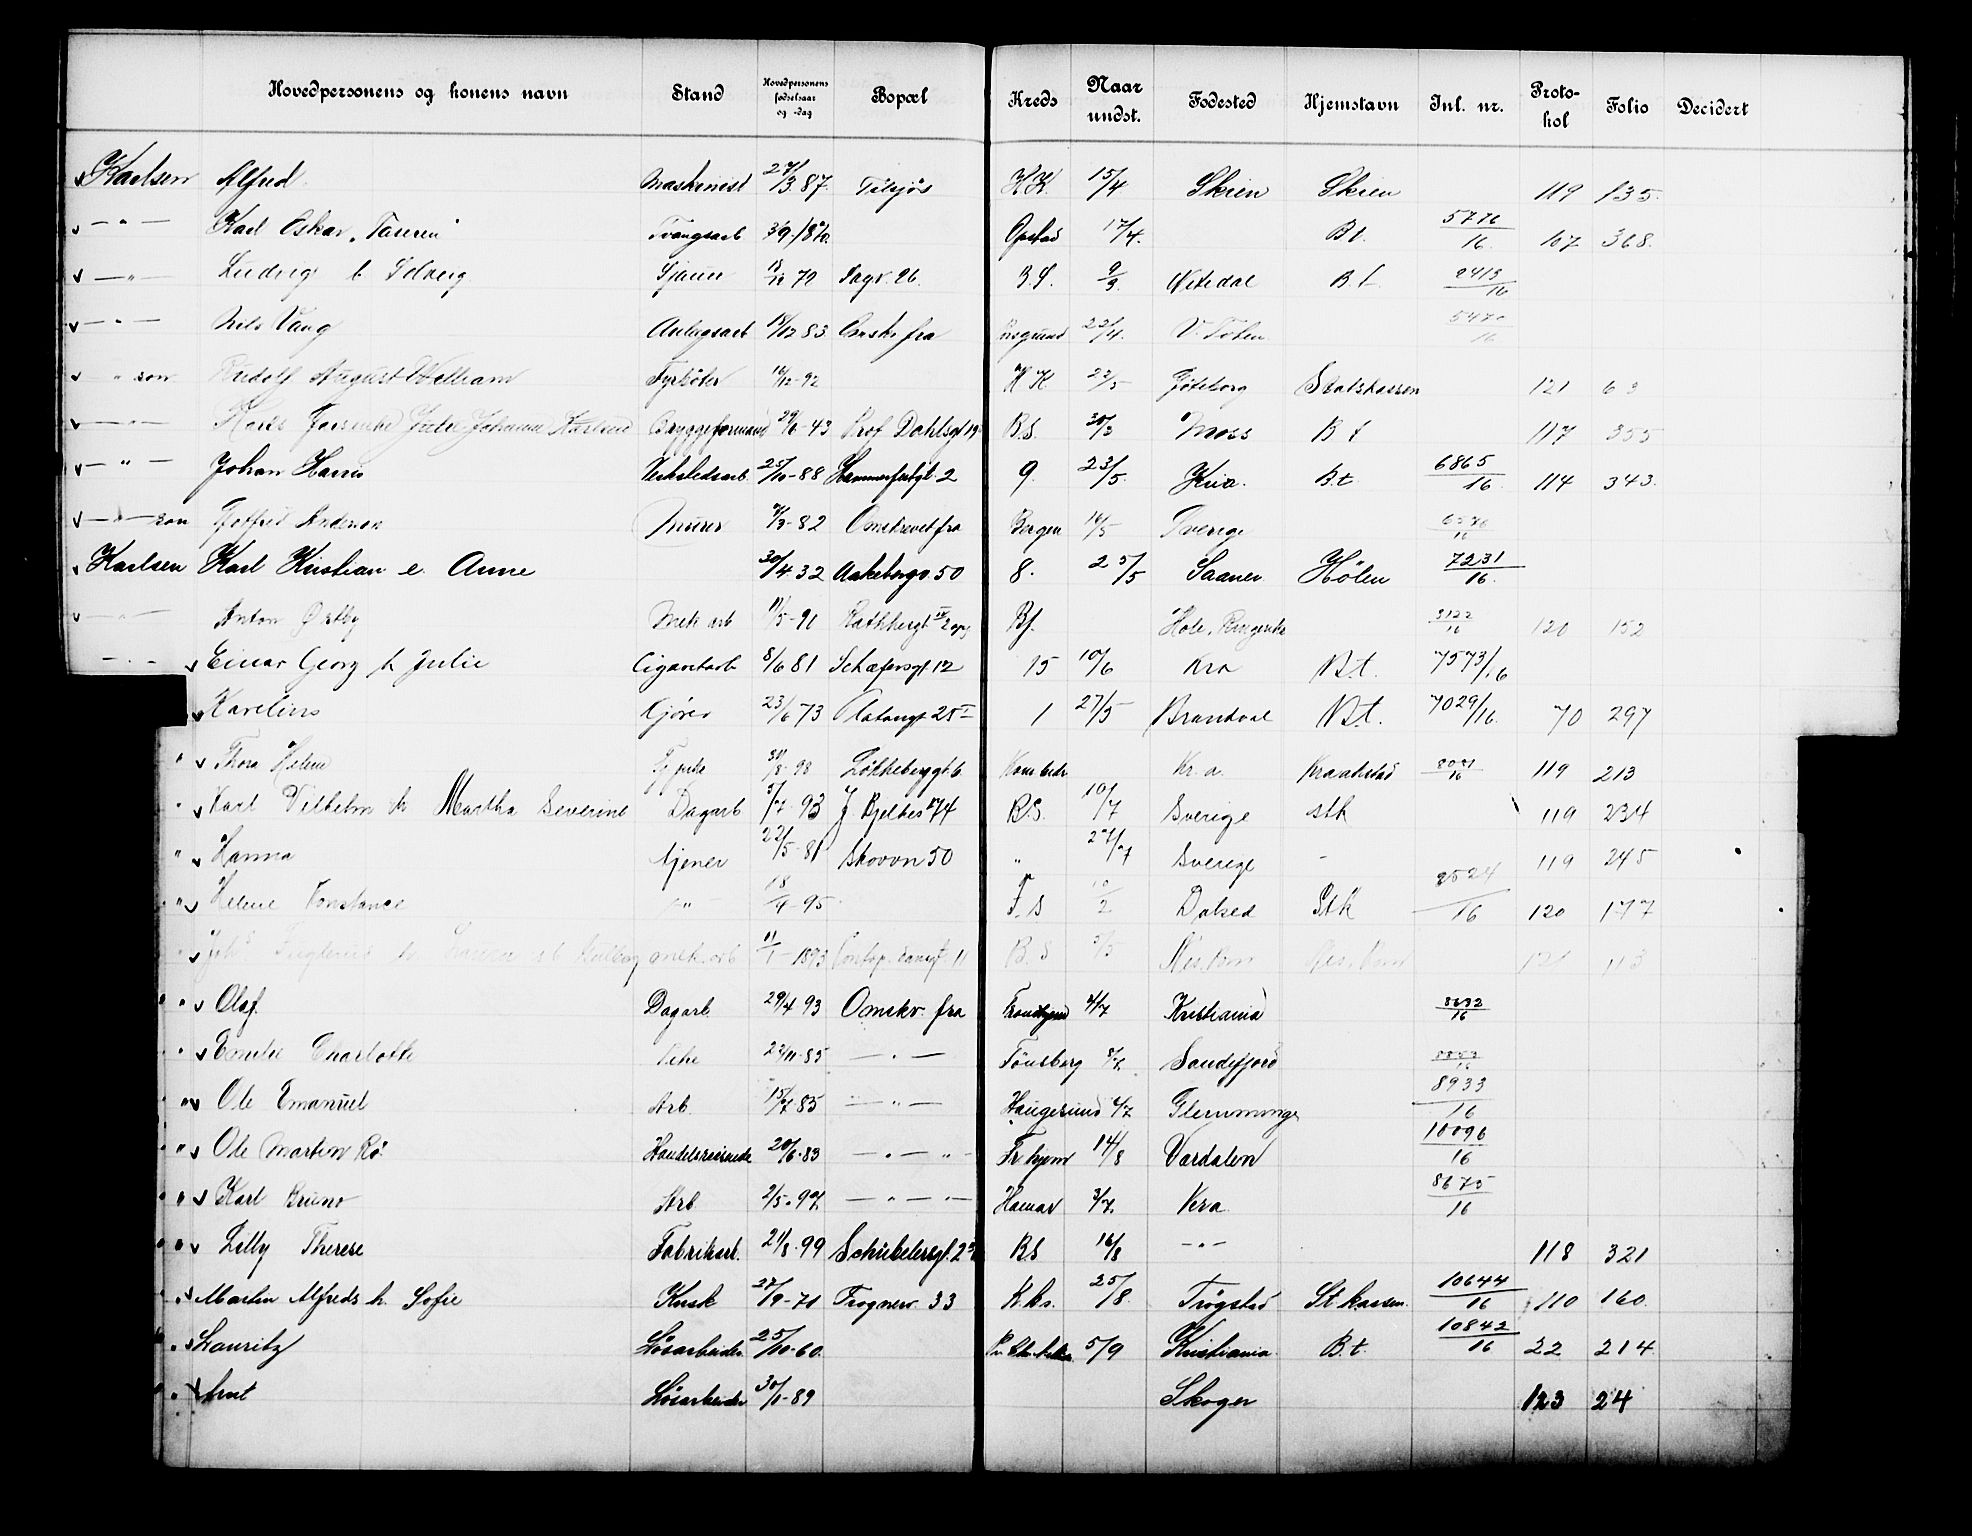 Hovedpersonens og konens navn Stand Hovedpersonens fødselsaar og -dag Bopæl Kreds Naar undst. Fødested Hjemstavn Inl. nr. Protokol Folio Decidert
Karlsen Alfred Maskinist 27/3 87 H.K. 15/4 Skien Skien 119 135.
— " — Karl Oskar, Opstad 17/4. B.t. 5776/16. 107 368.
— " — Ludvig h Solveig 72 26. B.S. 2/3. B.t. 2413/16
— " — Nils Vang Anlegsarb 18/12 83 fra 23/4. 5470/16
" son Rudolf August William Fyrbøter 16/12-92 H K 22/5 Gøteborg Statskassen 121 63
— " — Johanne Karlsen Bryggeformand 29/6-43 Prof Dahlsgt 19 B.S. 30/3 Moss B t 117 355
— " — Johan Hans Verkstedsarb. 25/10-88 Hammerfestgt. 2 9. 23/5. Kria. B.t. 6865/16. 114 343.
— " — son Gotfred Anderson Murer 82 Omskrevet fra Bergen 16/5 Sverige 6576/16
Karlsen Karl Kristian e. Anne 30/4 32 Aakebergv. 50 8. 25/5 Saaner Hølen 7231/16.
— " — Anton Østby Mek arb 11/5-91 Bf. Hole, Ringerike 3122/16 120 152
— " — Einar Georg h Julie Cigaretarb 8/6 81 Schæfersgt 12 15 10/6 Kra B.t. 7573/16
Karelius Kjører 23/6 73 Platousgt 25 I 1 27/5 Brandval B.t. 7029/16. 70 297
" Thora Helene 31/8-98 Løkkeberggt. 6. Kr.a. Kraakstad 8081/16 119 213
" Karl Vilhelm h Martha Severine Dagarb 5/7-93 J. Bjelkesgt 74 B.S. 10/7 Sverige stk 119 234
" Hanna tjener 22/5-81 Skovvn 50 " 27/7 Sverige - 119 245
" Helene Konstance — " — 18/9-95 F. S 10/2 Stk 2524/16 120 177
" h mek. arb 11/1-1893 11 B. S 5/5 121 113
" Olaf Dagarb 29/4 93 Omskr. fra 4/7 Kristiania 8632/16
" Emilie Charlotte 23/11-85 — " — Tønsberg Sandefjord
" Ole Emanuel Arb. 15/7-85 — " — Haugesund 4/7 Glemminge 8933/16
" Ole Martin Rø Handelsreisende 20/6-83 — " — " — Tr.hjem 14/8 Vardalen 10096/16
" Karl Bruno Arb. 2/5-97. — " — " — Hamar 3/7. Kra 8675/16
" Lilly Therese Fabrikarb. 21/8-99 Schübelersgt. BS 16/8 — " — 118 321
" Martin Alfreds h. Sofie Kusk 27/9-71 Frognerv. 33 K.ks. 25/8. Trøgstad St kassen. 10644/16 110 160.
" Lauritz Løsarbeider 25/10-60. 5/9 Kristiania. B.t. 10842/16 22 214.
" Arnt Løsarbeider 30/1-89 Skoger 123 24